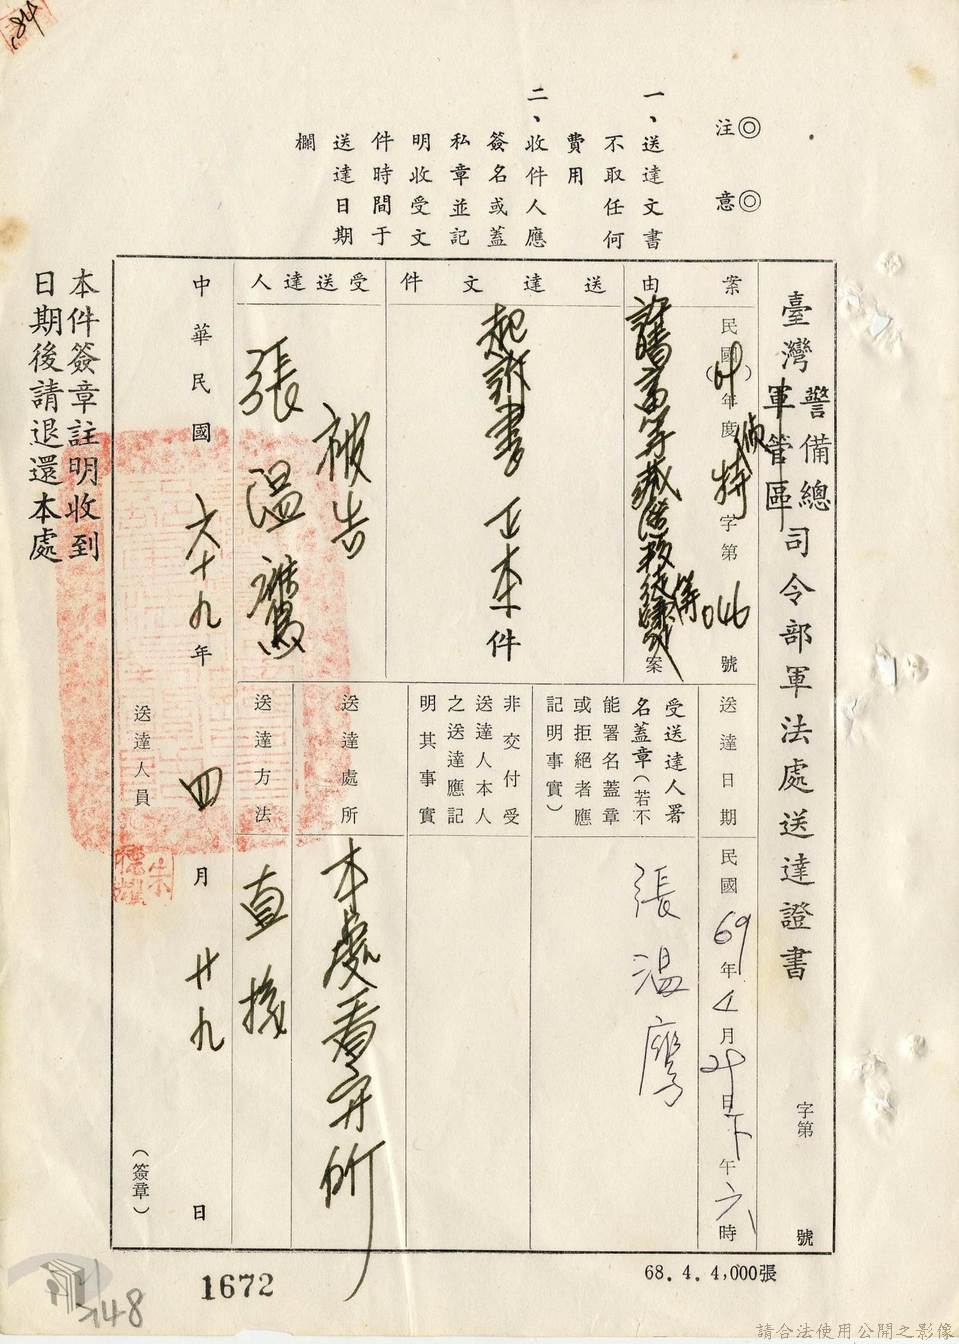 184
◎注意◎
一、送達文書
不取任何
費用
二、收件人應
簽名或蓋
私章並記
明收受文
件時間于
送達日期
欄
臺灣警備總軍管區司令部軍法處送達證書
字第 號
案由
民國( )年度偵特字第046號
等案
送達文件
起訴書正本 件
受送達人
被告
張溫鷹
中華民國六十九年四月廿九日
送達日期
民國69年4月29日下午六時
受送達人署
名蓋章(若不
能署名蓋章
或拒絕者應
記明事實)
張温鷹
非交付受
送達人本人
之送達應記
明其事實
送達處所
本處看守所
送達方法
直接
送達人員
朱
(簽章)
本件簽章註明收到
日期後請退還本處
68.4.4,000張
1672
148
請合法使用公開之影像